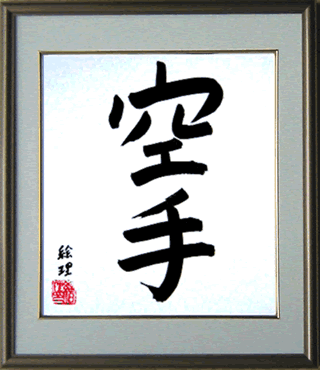 空手
絵理